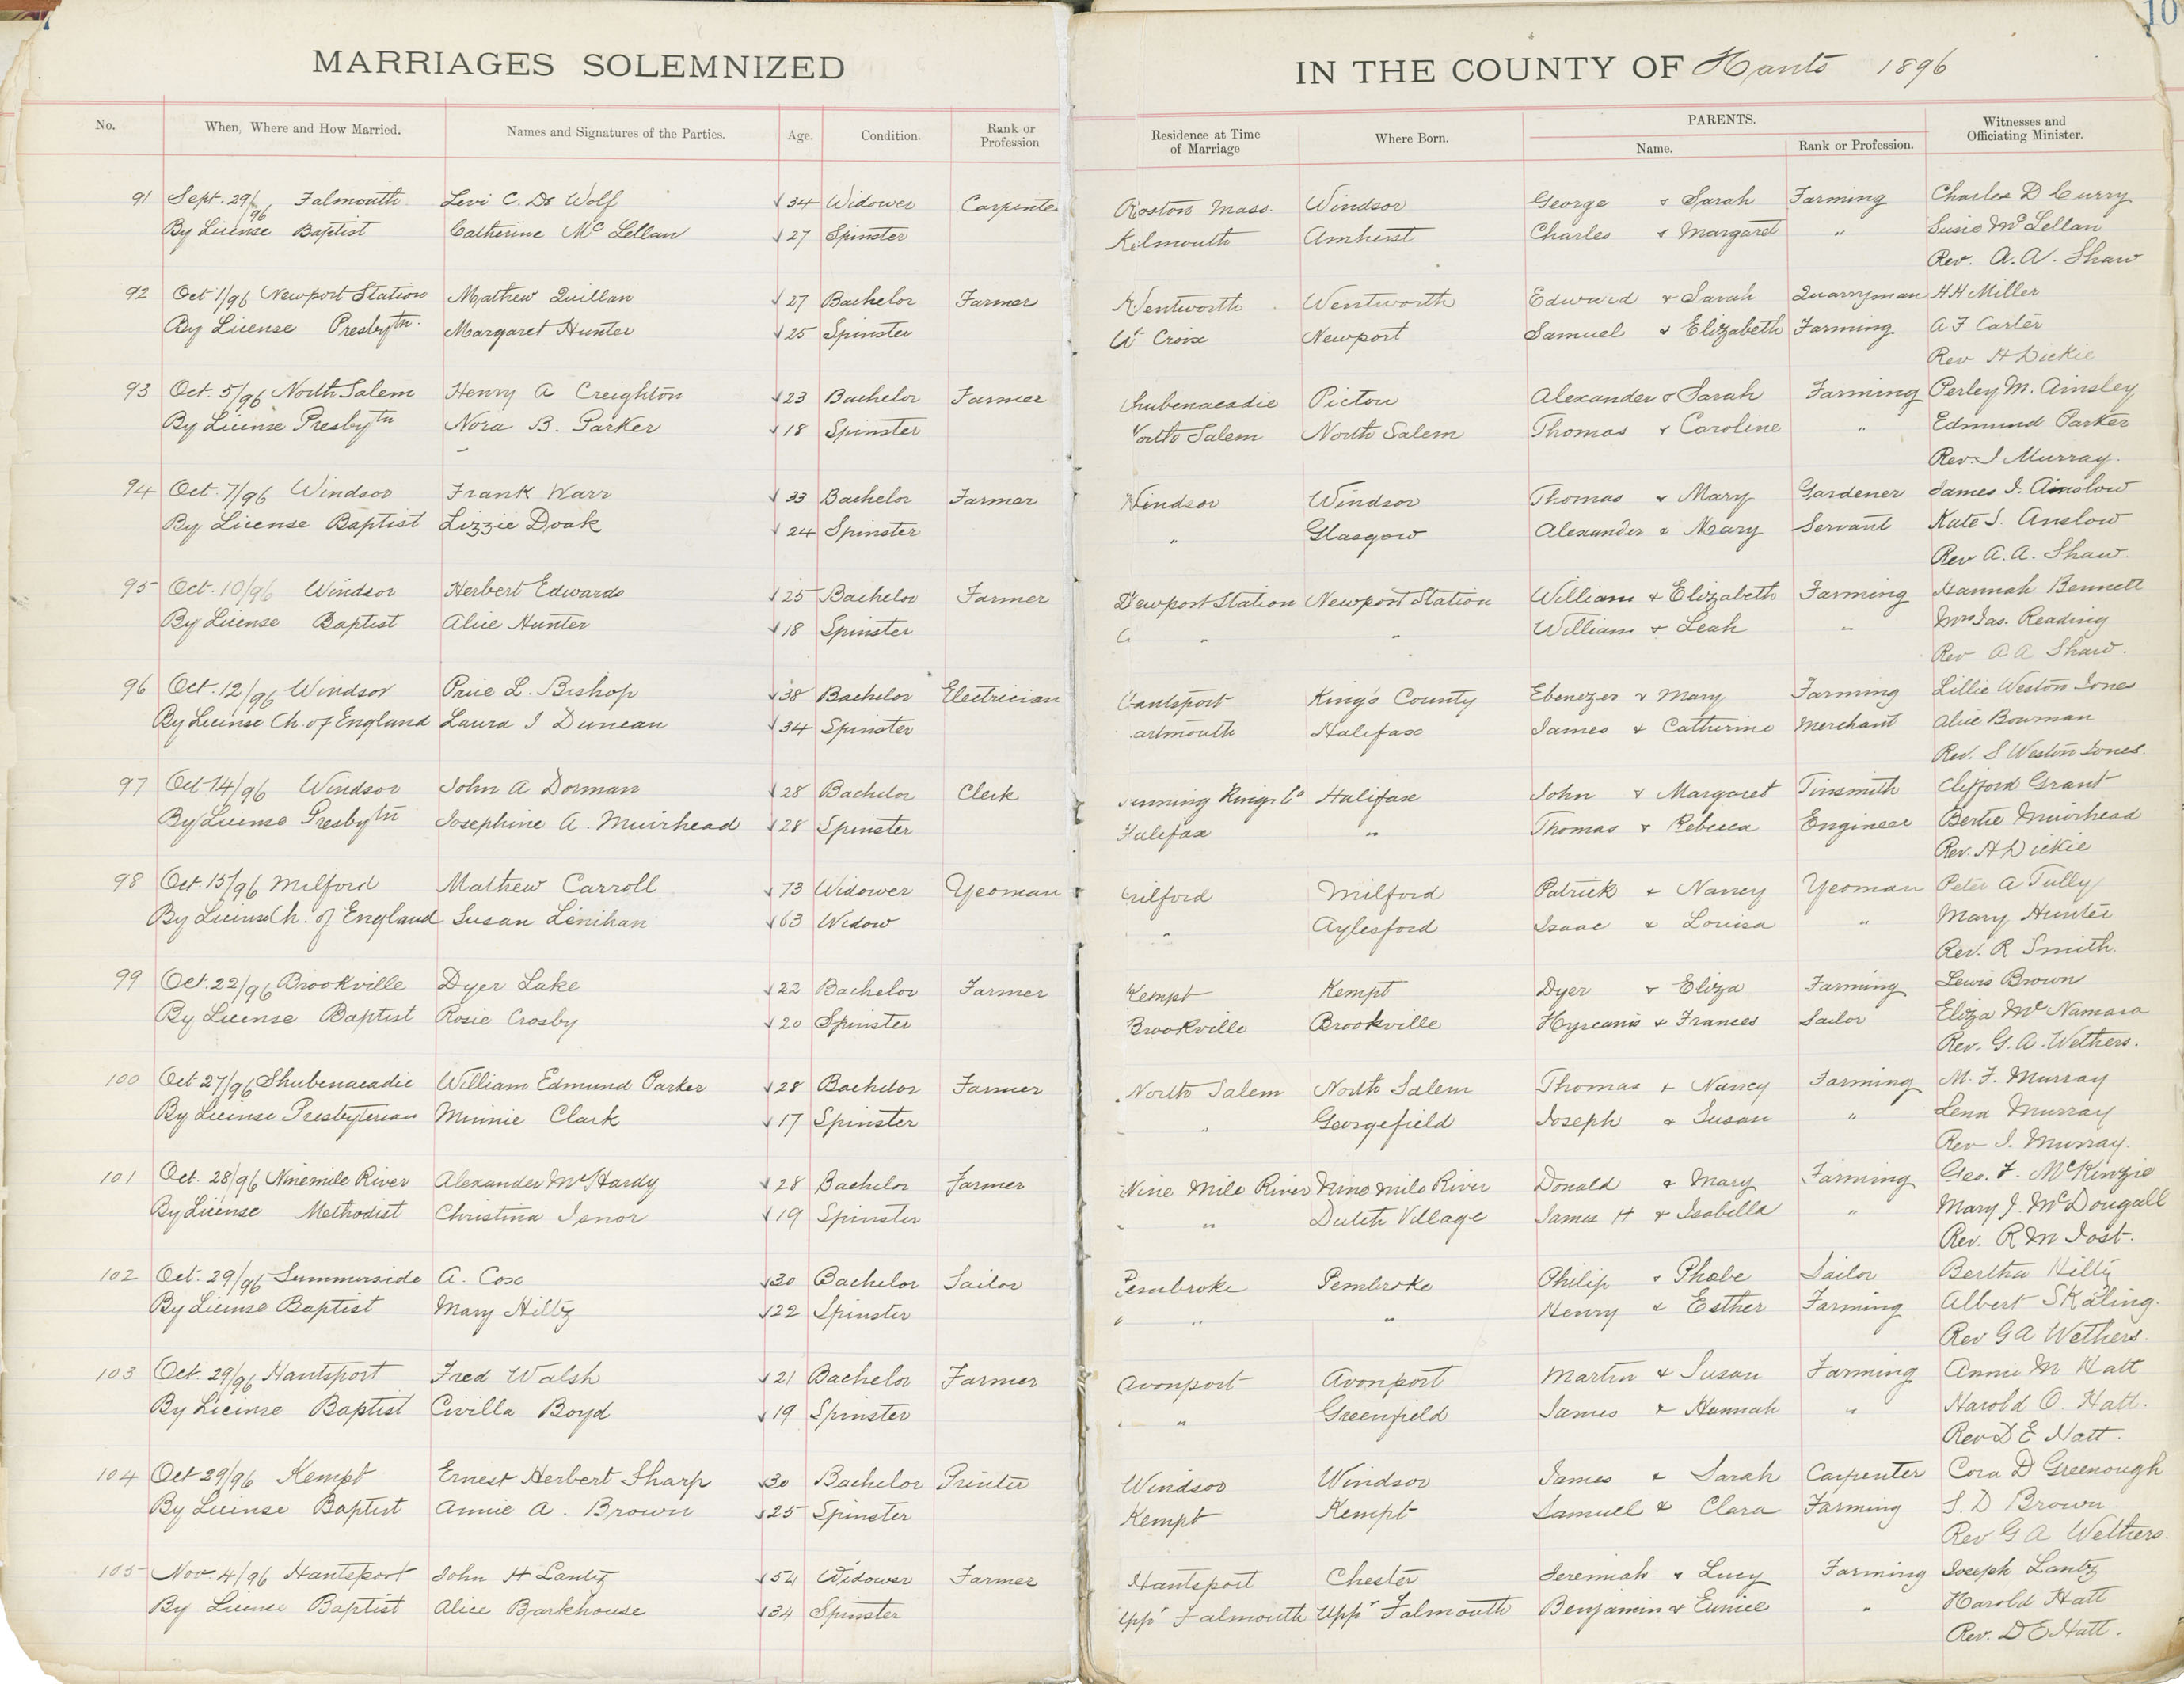 10
MARRIAGES SOLEMNIZED IN THE COUNTY OF Hants 1896
No. When, Where and How Married. Names and Signatures of the Parties. Age. Condition. Rank or Profession Residence at Time of Marriage Where Born. PARENTS. Name. Rank or Profession. Witnesses and Officiating Minister.
91 Sept. 29/96 Falmouth Levi C. De Wolf 34 Widower Carpenter Boston Mass. Windsor George & Sarah Farming Charles D Curry
By License Baptist Catherine Mc Lellan 27 Spinster Falmouth Amherst Charles & Margaret " Susie Mc Lellan
Rev. A. A. Shaw
92 Oct 1/96 Newport Station Mathew Quillan 27 Bachelor Farmer Wentworth Wentworth Edward & Sarah Quarryman HH Miller
By License Presbytn. Margaret Hunter 25 Spinster St Croix Newport Samuel & Elizabeth Farming A F Carter
Rev H Dickie
93 Oct. 5/96 North Salem Henry A Creighton 23 Bachelor Farmer Shubenacadie Pictou Alexander & Sarah Farming Perley M. Ainsley
By License Presbytn Nora B. Parker 18 Spinster North Salem North Salem Thomas & Caroline " Edmund Parker
Rev. J Murray.
94 Oct. 7/96 Windsor Frank Warr 33 Bachelor Farmer Windsor Windsor Thomas & Mary Gardener James J. Anslow
By License Baptist Lizzie Doak 24 Spinster " Glasgow Alexander & Mary Servant Kate S. Anslow
Rev A. A. Shaw.
95 Oct. 10/96 Windsor Herbert Edwards 25 Bachelor Farmer Newport Station Newport Station William & Elizabeth Farming Hannah Bennett
By License Baptist Alice Hunter 18 Spinster " " " William & Leah " Mrs Jas. Reading
Rev A A Shaw.
96 Oct. 12/96 Windsor Price L. Bishop 38 Bachelor Electrician Hantsport King's County Ebenezer & Mary Farming Lillie Weston Jones
By License Ch. of England Laura J Duncan 34 Spinster Dartmouth Halifax James & Catherine Merchant Alice Bowman
Rev. S Weston Jones.
97 Oct 14/96 Windsor John A Dorman 28 Bachelor Clerk Canning Kings Co Halifax John & Margaret Tinsmith Clifford Grant
By License Presbytn Josephine A. Muirhead 28 Spinster Halifax " Thomas & Rebecca Engineer Bertie Muirhead
Rev. H Dickie
98 Oct. 15/96 Milford Mathew Carroll 73 Widower Yeoman Milford Milford Patrick & Nancy Yeoman Peter A Tully
By License Ch. of England Susan Linihan 63 Widow " Aylesford Isaac & Louisa " Mary Hunter
Rev. R Smith.
99 Oct. 22/96 Brookville Dyer Lake 22 Bachelor Farmer Kempt Kempt Dyer & Eliza Farming Lewis Brown
By License Baptist Rosie Crosby 20 Spinster Brookville Brookville Hyrcanis & Frances Sailor Eliza Mc Namara
Rev. G. A. Wethers.
100 Oct 27/96 Shubenacadie William Edmund Parker 28 Bachelor Farmer North Salem North Salem Thomas & Nancy Farming M. F. Murray
By License Presbyterian Minnie Clark 17 Spinster " " Georgefield Joseph & Susan " Lena Murray
Rev J. Murray.
101 Oct. 28/96 Ninemile River Alexander McHardy 28 Bachelor Farmer Nine Mile River Nine Mile River Donald & Mary Farming Geo. F. McKinzie
By License Methodist Christina Isnor 19 Spinster " " Dutch Village James H & Isabella " Mary J. McDougall
Rev. R M Jost.
102 Oct. 29/96 Summerside A. Cox 30 Bachelor Sailor Pembroke Pembroke Philip & Phebe Sailor Bertha Hiltz
By License Baptist Mary Hiltz 22 Spinster " " " Henry & Esther Farming Albert Skaling.
Rev G A Wethers.
103 Oct. 29/96 Hantsport Fred Walsh 21 Bachelor Farmer Avonport Avonport Martin & Susan Farming Annie M Hatt
By License Baptist Civilla Boyd 19 Spinster " " Greenfield James & Hannah " Harold O. Hatt.
Rev D E Hatt.
104 Oct 29/96 Kempt Ernest Herbert Sharp 30 Bachelor Printer Windsor Windsor James & Sarah Carpenter Cora D Greenough
By License Baptist Annie A. Brown 25 Spinster Kempt Kempt Samuel & Clara Farming S. D Brown
Rev G A Wethers.
105 Nov 4/96 Hantsport John H Lantz 54 Widower Farmer Hantsport Chester Jeremiah & Lucy Farming Joseph Lantz
By License Baptist Alice Barkhouse 34 Spinster Uppr Falmouth Uppr Falmouth Benjamin & Eunice " Harold Hatt
Rev. D E Hatt.